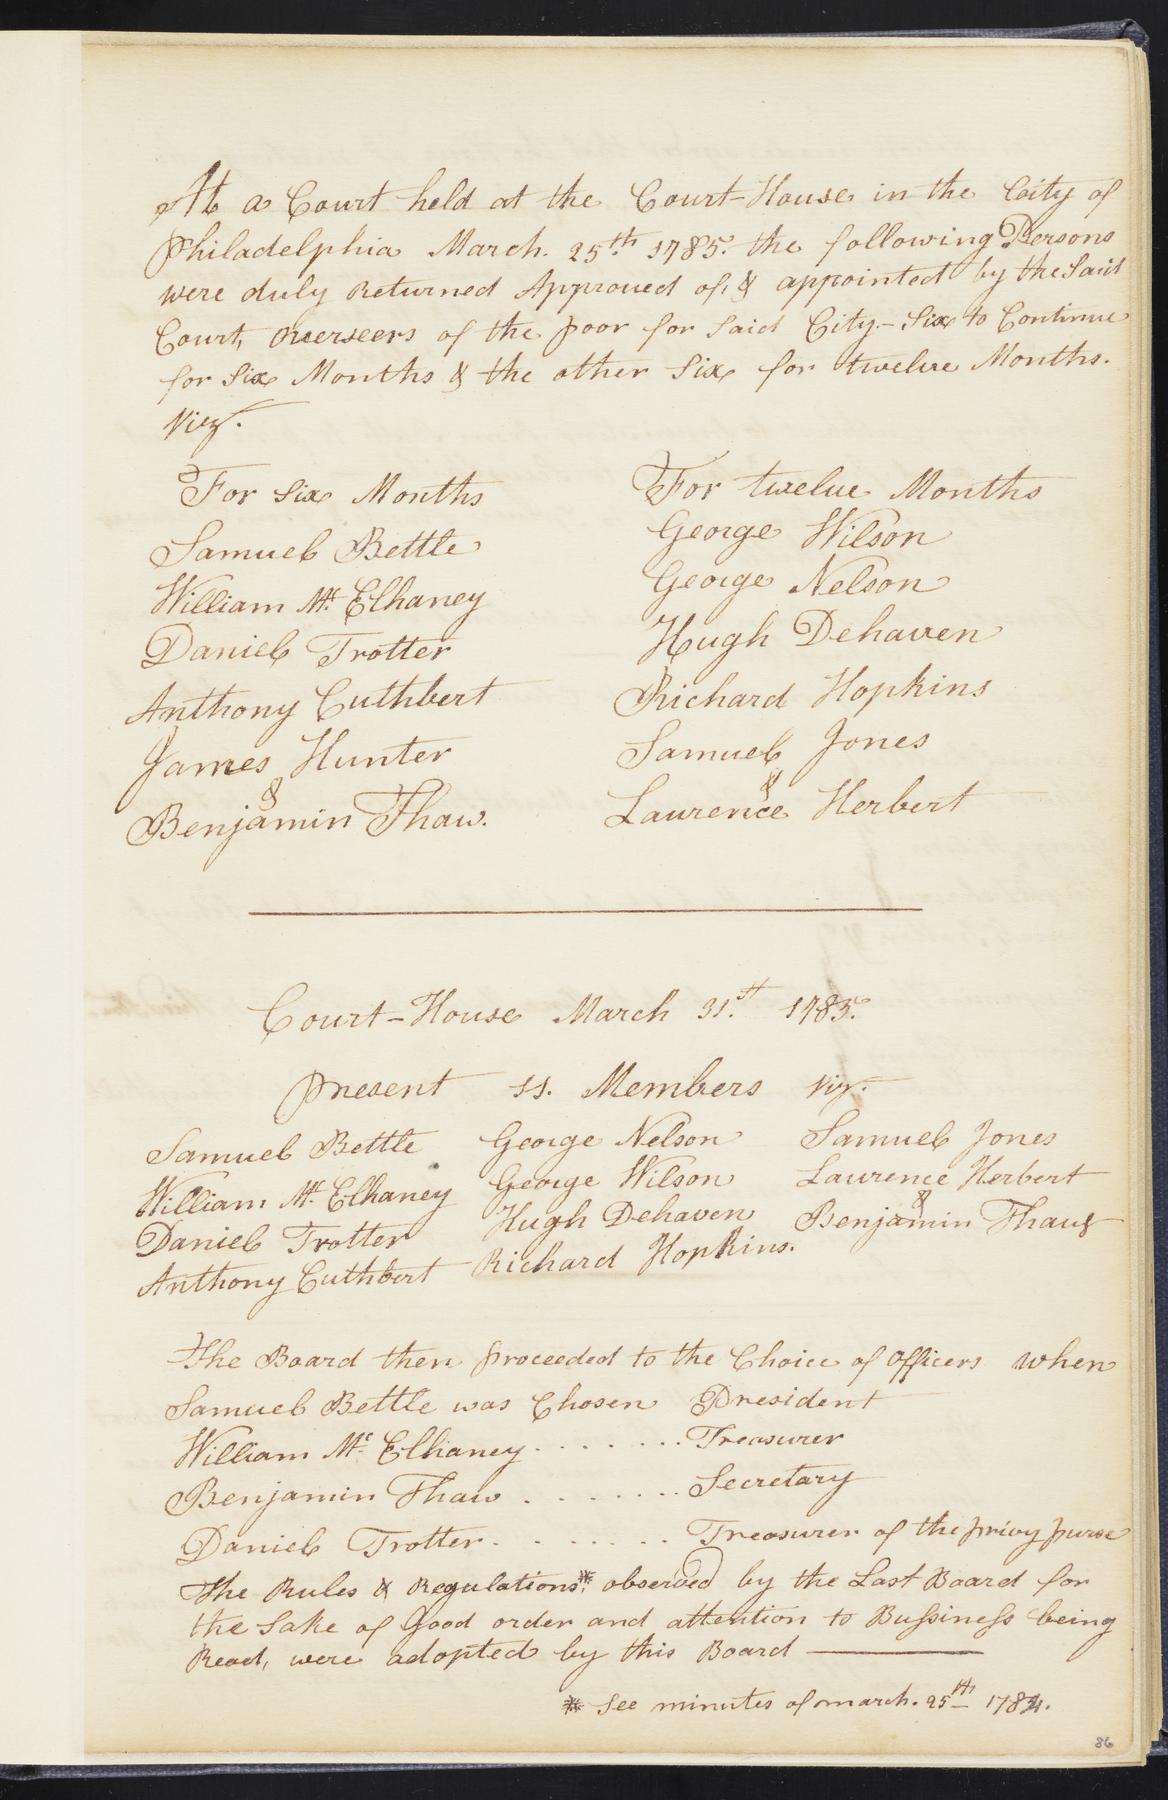 At a Court held at the Court-House in the City of
Philadelphia March. 25th. 1785. the following Persons
were duly Returned Approved of, & appointed by the Said
Court, Overseers of the poor for Said City.- Six to Continue
for Six Months & the other Six for twelve Months.
Viz.
For Six Months
Samuel Bettle
William Mc. Elhaney
Daniel Trotter
Anthony Cuthbert
James Hunter
&
Benjamin Thaw.
For twelve Months
George Wilson
George Nelson
Hugh Dehaven
Richard Hopkins
Samuel Jones
&
Laurence Herbert
Court-House March 31.st 1785.
Present 11. Members Viz.
Samuel Bettle George Nelson Samuel Jones
William Mc. Elhaney George Wilson Laurence Herbert
&
Daniel Trotter Hugh Dehaven Benjamin Thaw
Anthony Cuthbert Richard Hopkins.
The Board then proceeded to the Choice of Officers when
Samuel Bettle was Chosen President
William Mc. Elhaney . . . . . . . Treasurer
Benjamin Thaw . . . . . . . Secretary
Daniel Trotter . . . . . . . Treasurer of the privy purse
The Rules & Regulations* observed by the Last Board for
the Sake of Good order and attention to Bussiness being
Read, were adopted by this Board
* See minutes of march. 25th 1784.
86